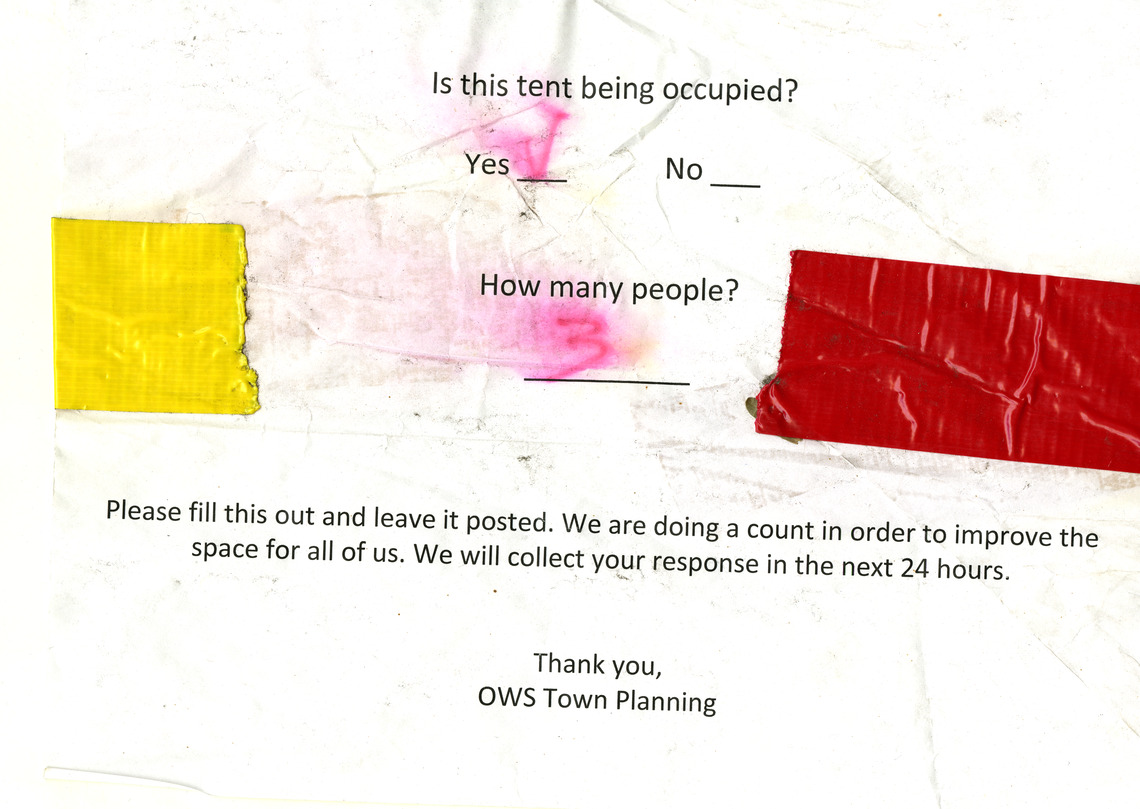 Is this tent being occupied?
Yes ___ No ___
How many people?
3
Please fill this out and leave it posted. We are doing a count in order to improve the
space for all of us. We will collect your response in the next 24 hours.
Thank you,
OWS Town Planning